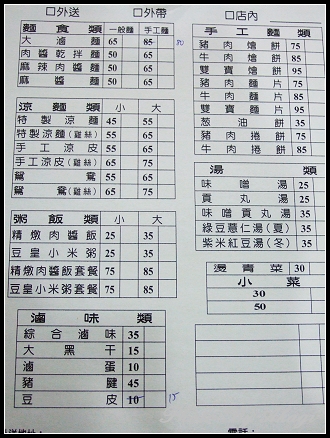 □外送 □外帶 □店內
麵食類 一般麵 手工麵
大滷麵 65 85 80
肉醬乾拌麵 50 65
麻辣肉醬麵 50 65
麻醬麵 50 65
涼麵類 小 大
特製涼麵 45 55
特製涼麵(雞絲) 55 65
手工涼皮 55 65
手工涼皮(雞絲) 65 75
鴛鴦 55 65
鴛鴦(雞絲) 65 75
粥飯類 小 大
精燉肉醬飯 25 35
豆皇小米粥 25 35
精燉肉醬飯套餐 75 85
豆皇小米粥套餐 75 85
滷味類
綜合滷味 35
大黑干 15
滷蛋 10
豬腱 45
豆皮 10 15
手工類
豬肉燴餅 75
牛肉燴餅 85
雙寶燴餅 95
豬肉麵片 75
牛肉麵片 85
雙寶麵片 95
葱油餅 35
豬肉捲餅 75
牛肉捲餅 85
湯類
味噌湯 25
貢丸湯 25
味噌貢丸湯 35
綠豆薏仁湯(夏) 35
紫米紅豆湯(冬) 35
燙青菜 30
小菜
30
50
送地址: 電話: